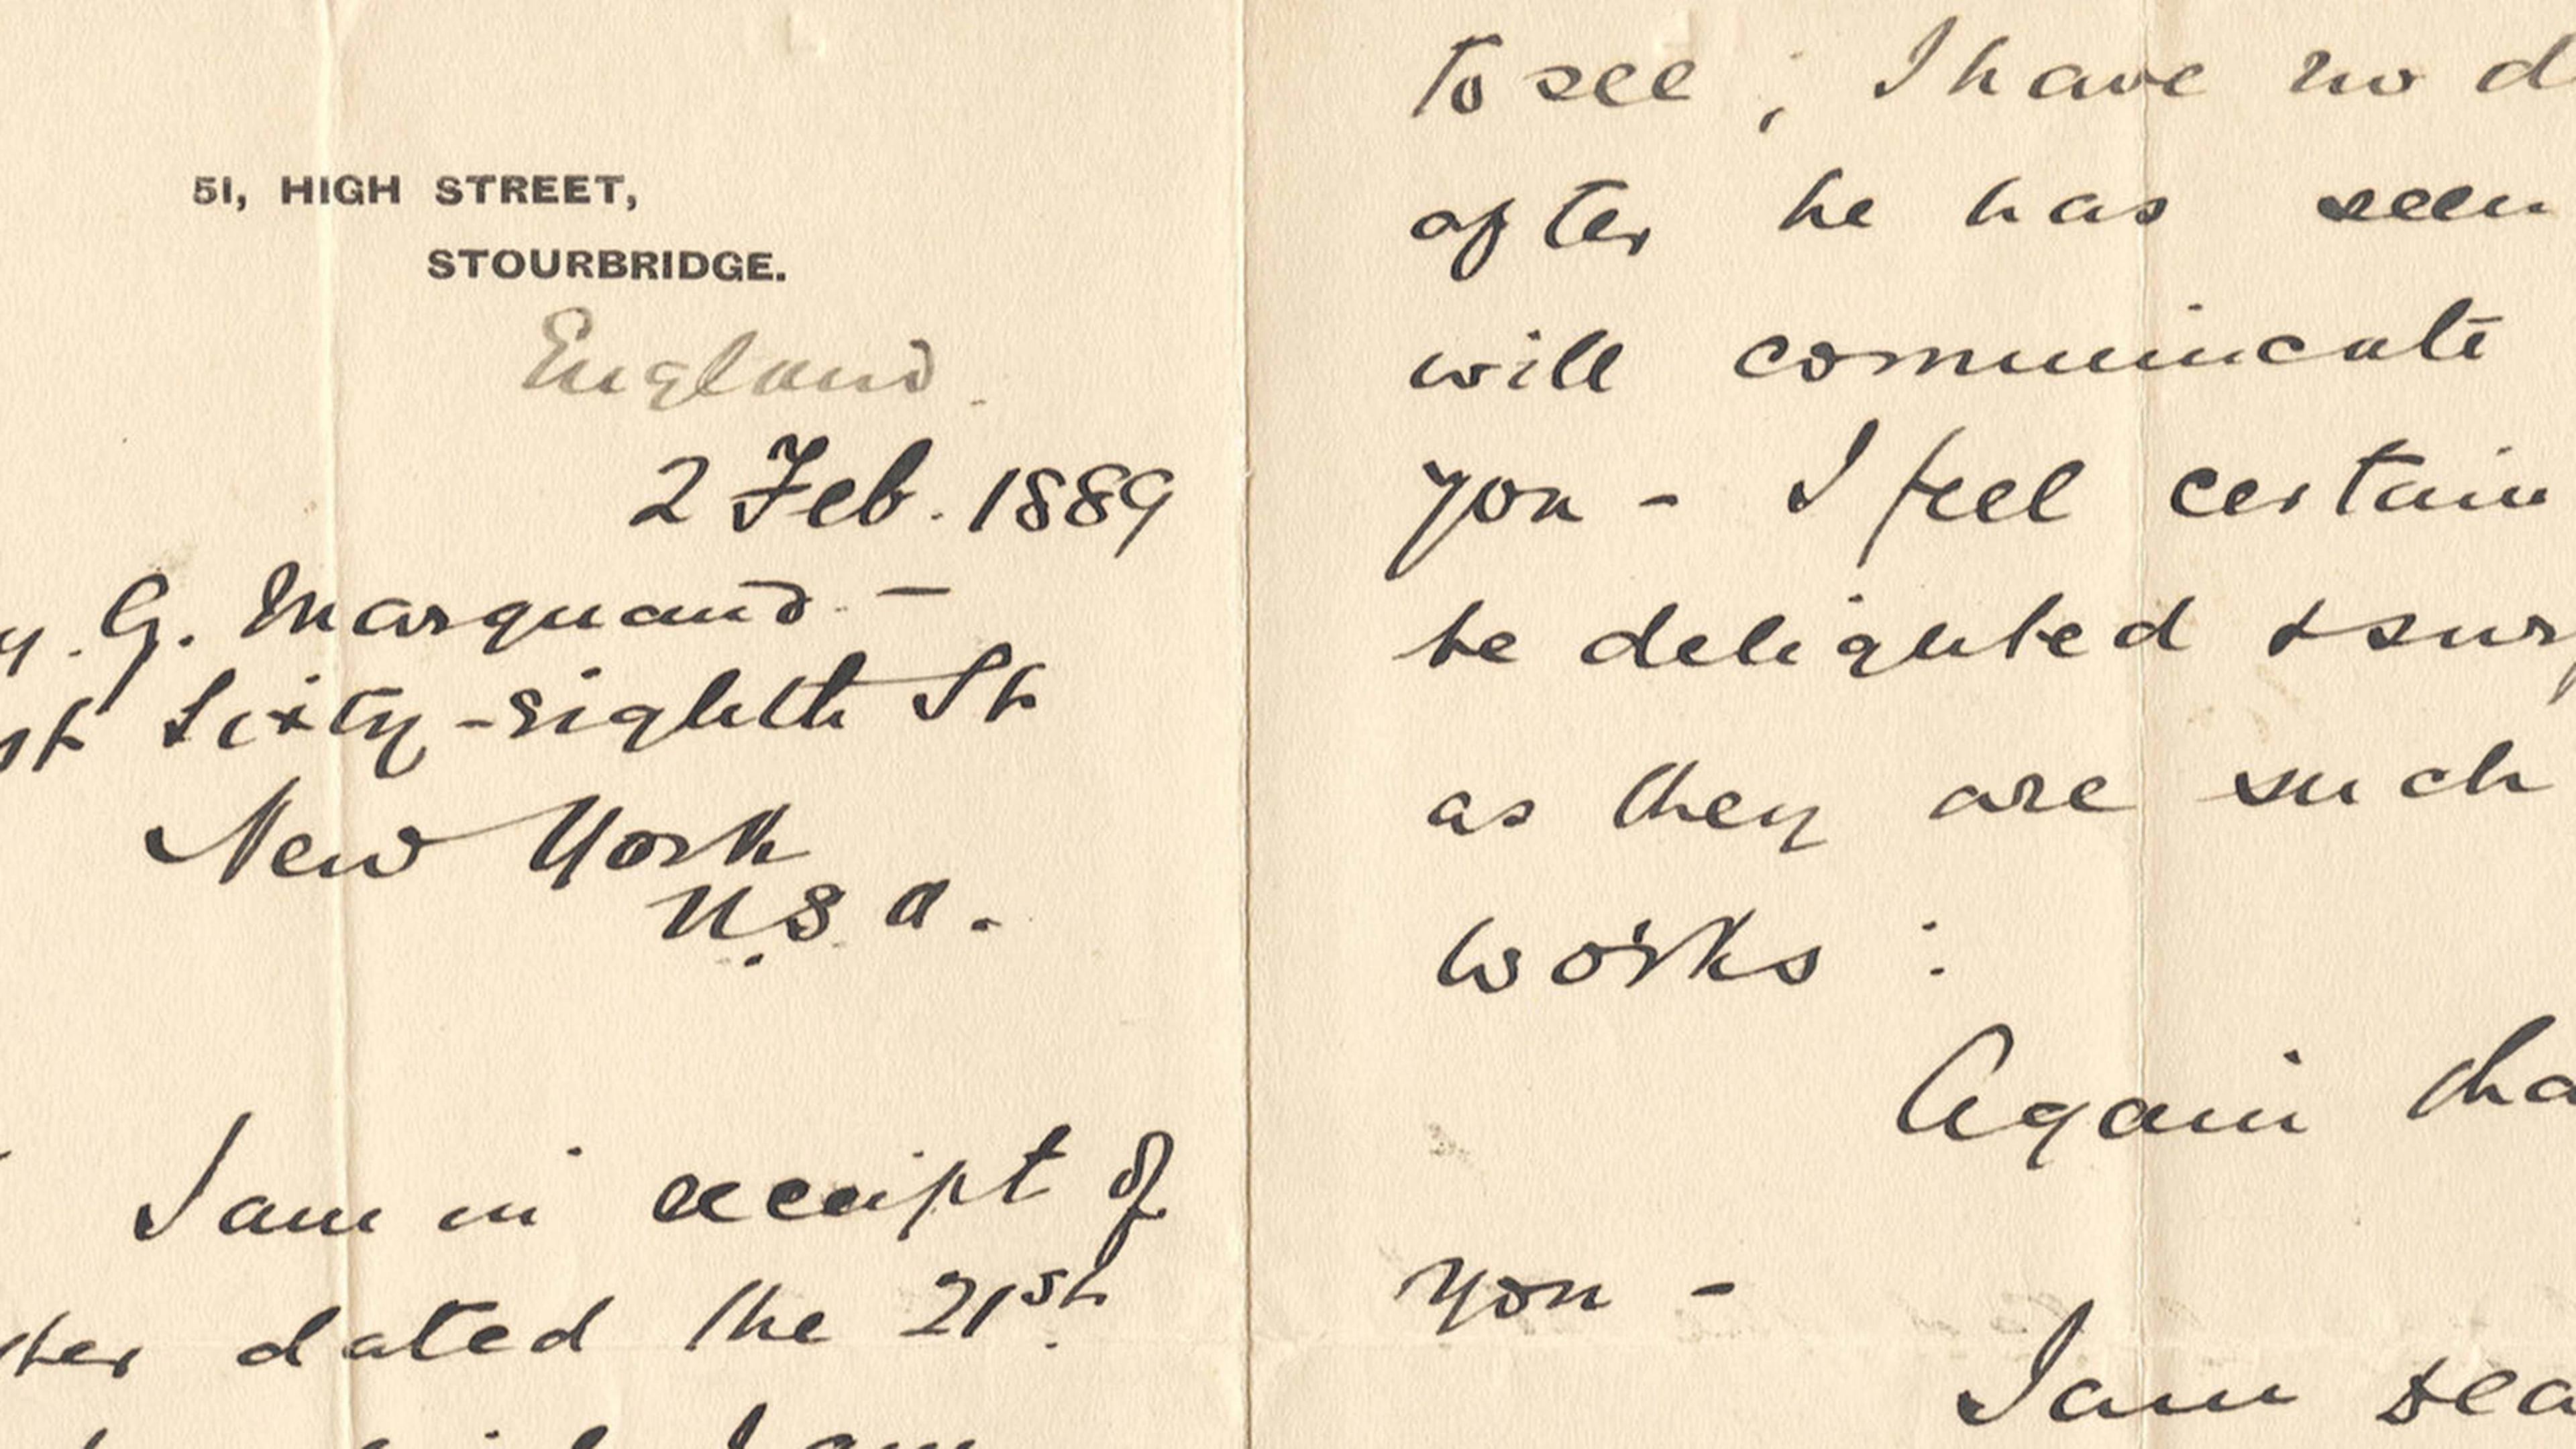 51, HIGH STREET,
STOURBRIDGE.
England.
2 Feb. 1889
y. G. Marquand. —
st Sixty-eighth St
New York
U.S.A.
I am in receipt of
ter dated the 21st.
I am
to see ; I have no d
after he has seen
will communicate
you - I feel certain
be delighted & surp
as they are such
works :
Again tha
you -
I am